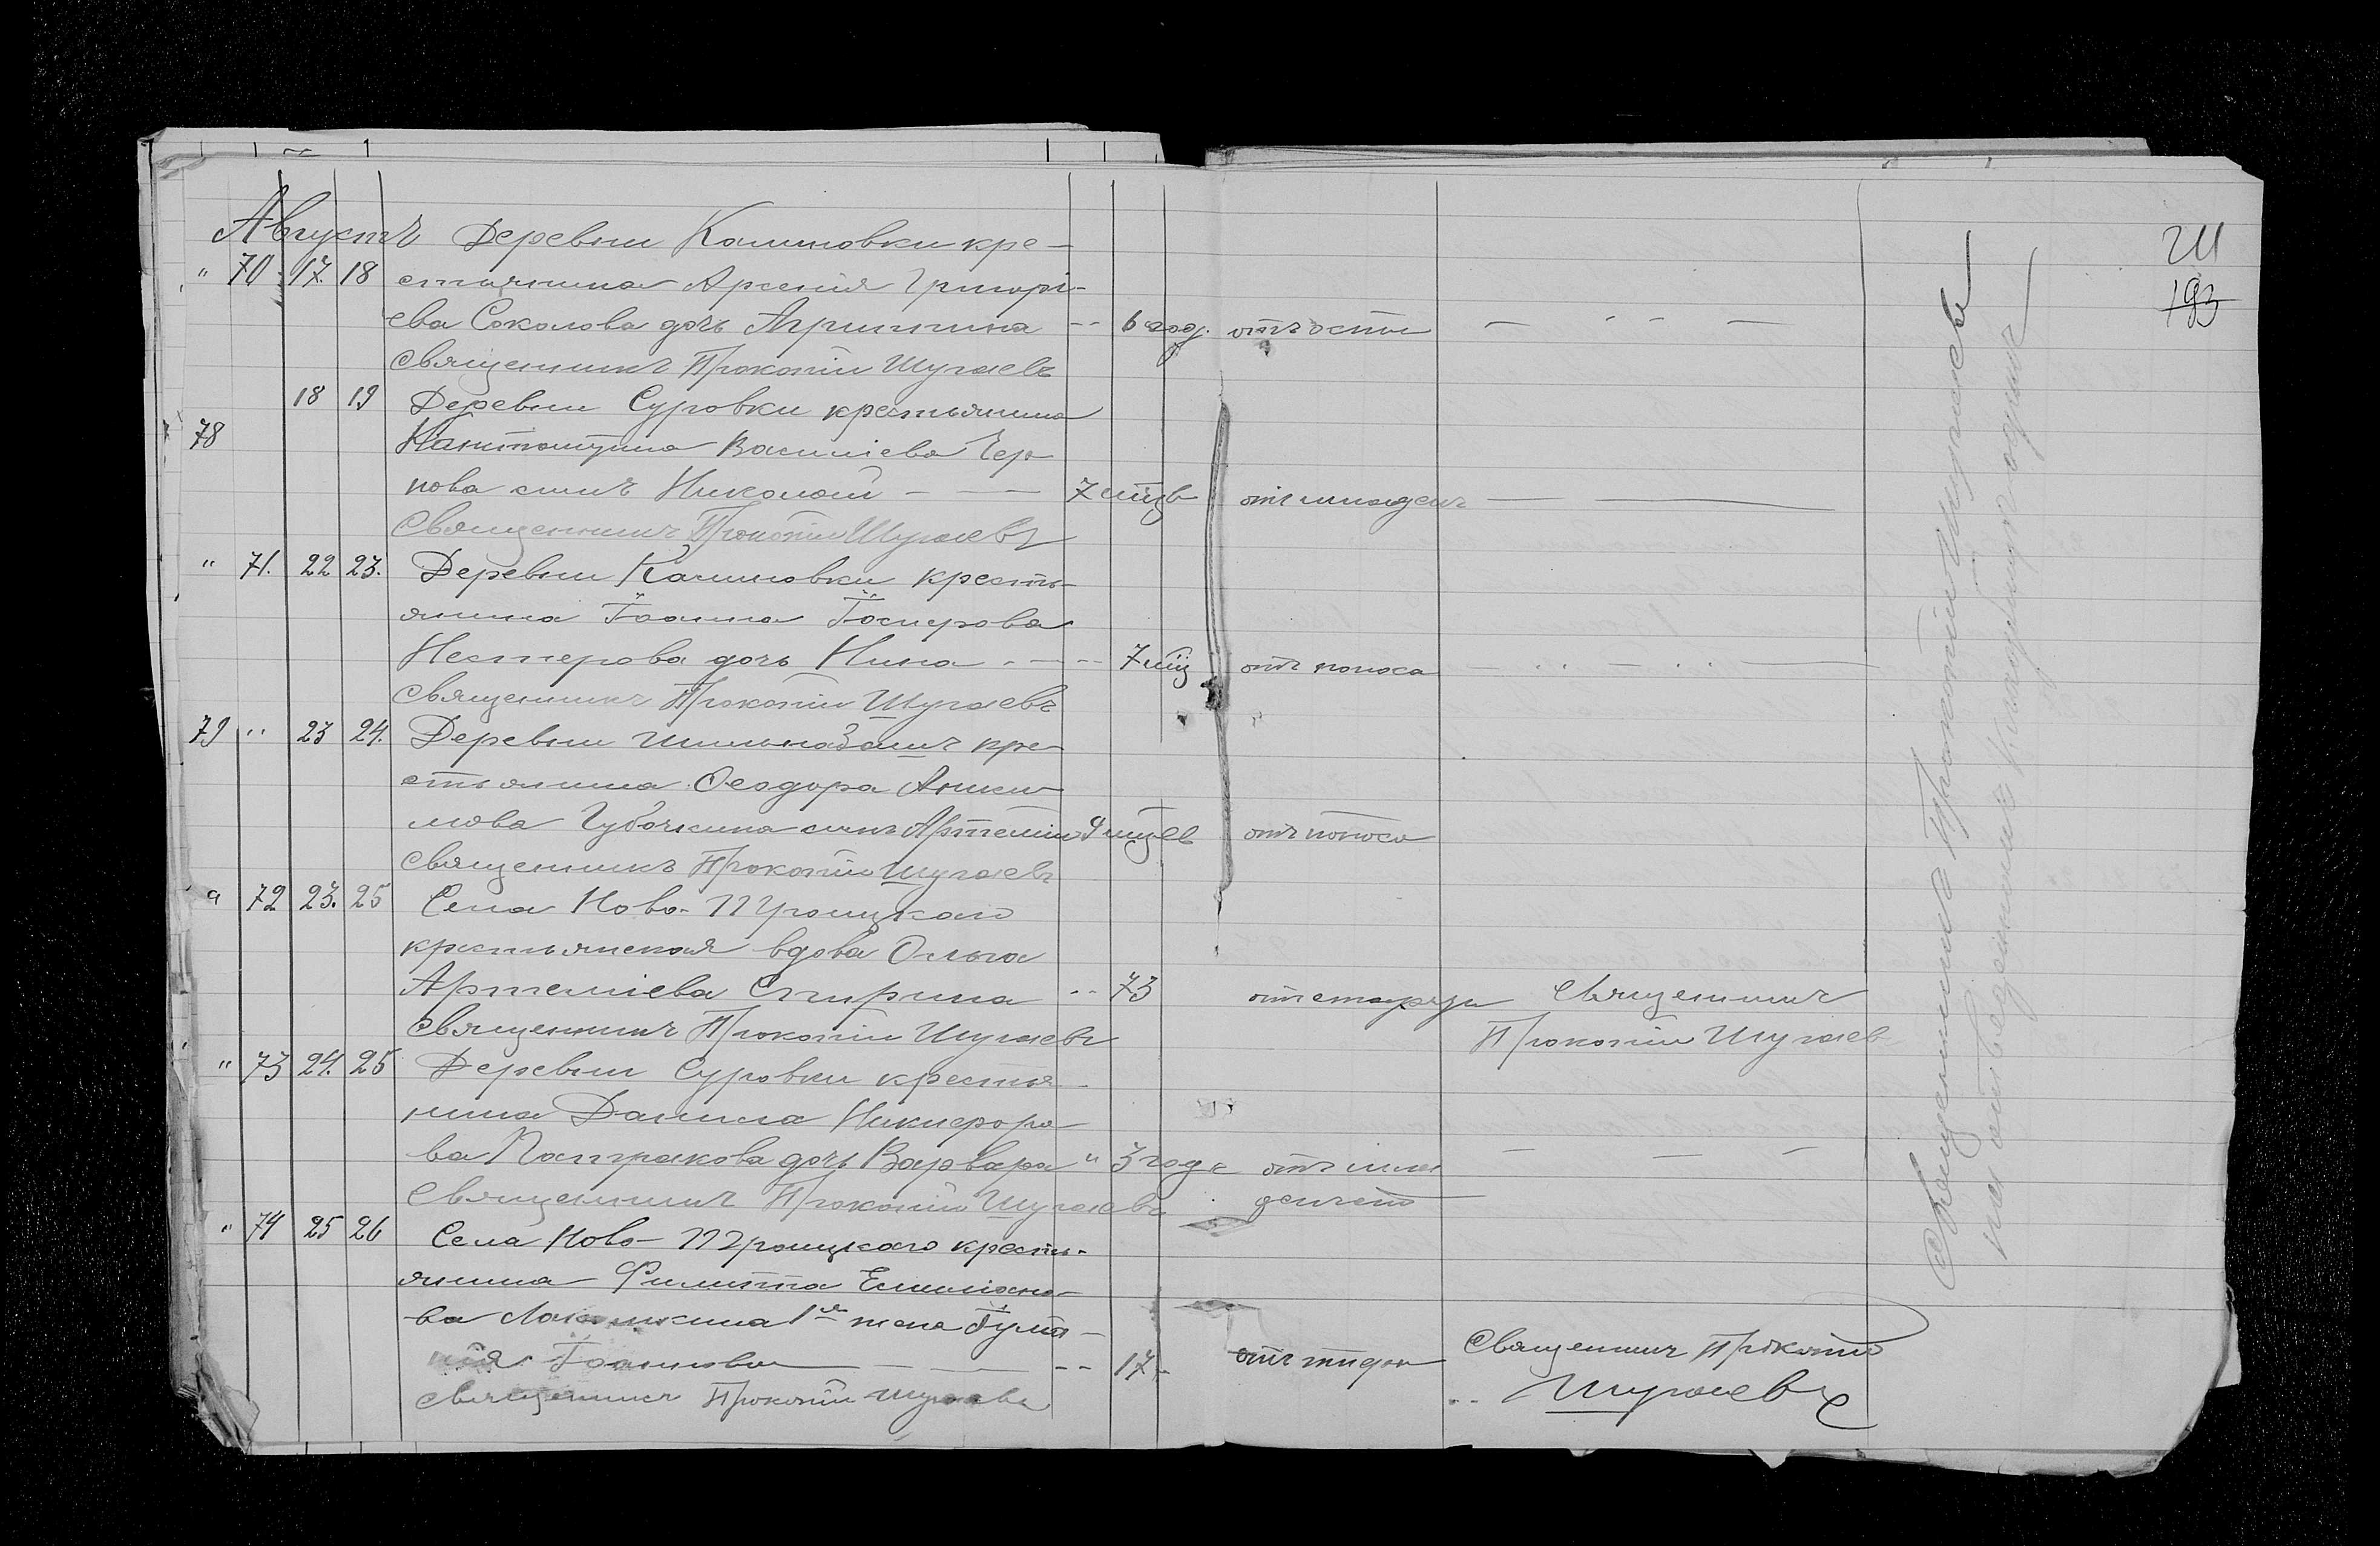 Августъ Деревни Калиновки кре-
" 70 17. 18 стьянина Арсенія Григорі-
ева Соколова дочь Агрипина -- 6 год. отъ оспы
Священникъ Прокопій Шугаевъ
18 19 Деревни Суровки крестьянина
78 Капитощина Василіева Чер-
нова сынъ Николай 7 мцвъ отъ младенч
Священникъ Прокопій Шугаевъ
" 71. 22 23. Деревни Калиновки кресть-
янина Іоанна Іосифова
Нестерова дочь Нина 7 мц отъ поноса
Священникъ Прокопій Шугаевъ
79 " 23 24. Деревни кре-
стьянина Ѳеодора Аники-
мова сынъ Артемій 4 мцевъ отъ поноса
Священникъ Прокопій Шугаевъ
72 23. 25 Села Ново-Троицкаго
крестьянская вдова Ольга
Артеміева Спирина -- 73 отъ старости Священникъ
Священникъ Прокопій Шугаевъ Прокопій Шугаев
" 73 24. 25 Деревни Суровки крестья-
нина Данила Никифоро-
ва дочь Варвара " 3 года отъ мла
Священникъ Прокопій Шугаевъ денчест
" 74 25 26 Села Ново-Троицкаго кресть-
янина Филиппа Емиліано-
ва 1я жена Іулі-
нія Іоаннова -- 17 отъ Священникъ Прокопій
Священникъ Прокопій Шугаевъ Шугаевъ
Священникъ Прокопій Шугаевъ
193